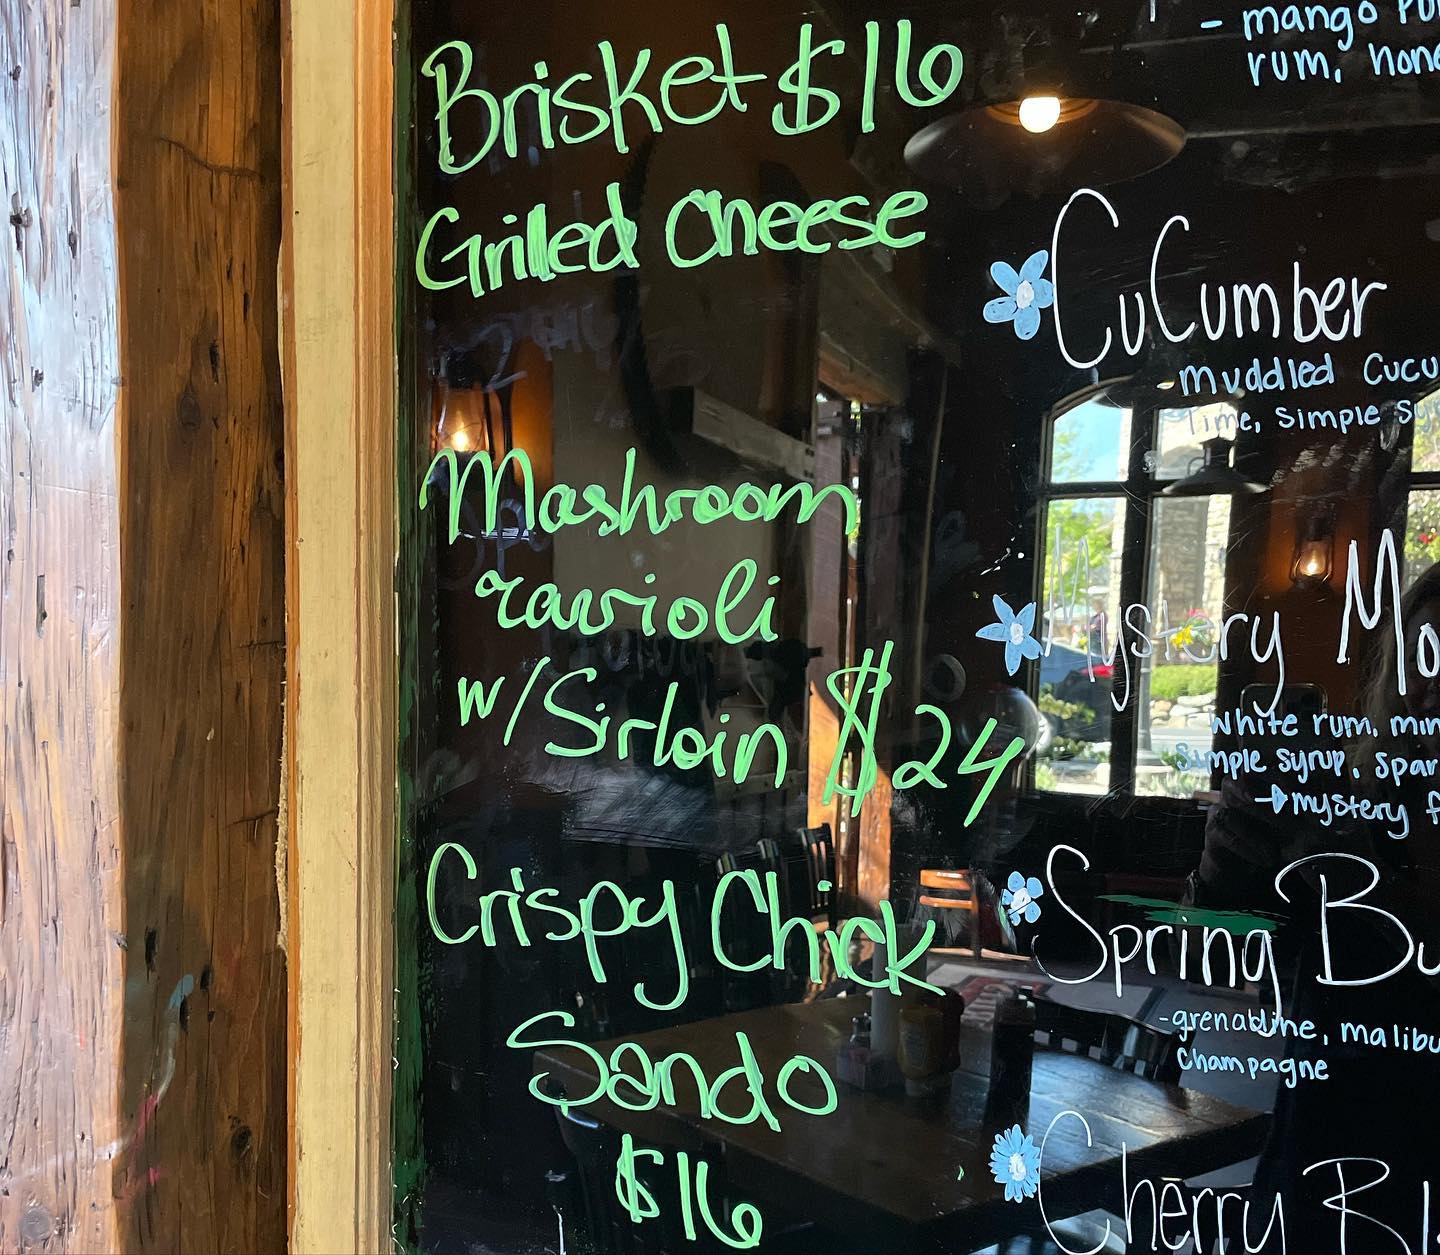 Brisket $16
Grilled Cheese
Mushroom
ravioli
w/Sirloin $24
Crispy Chick
Sando
$16
- mango
rum, 
CuCumber
- Muddled
lime, simple
Mystery
white rum,
simple syrup,
→ mystery
Spring
- grenadine,
champagne
Cherry